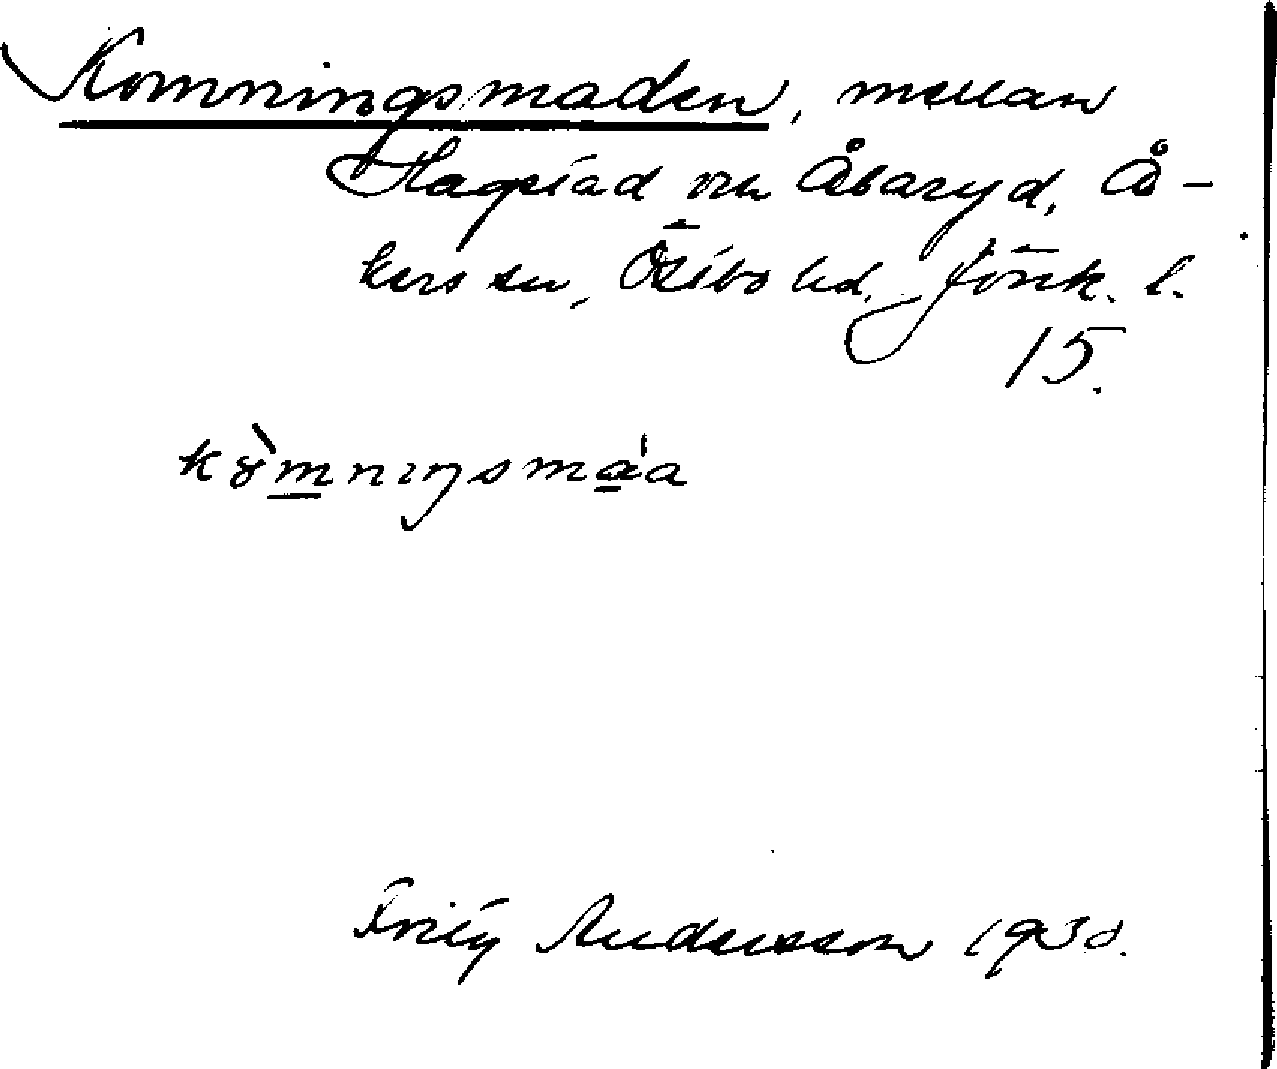 Komningsmaden, mellan
Hagstad och Åbaryd, Å-
kers sn, Östbo hd, Jönk. l.
15.
kò̀mniŋsmáa
Fritz Andersson 1930.